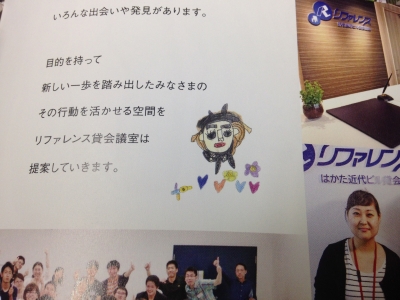 いろんな出会いや発見があります。
目的を持って
新しい一歩を踏み出したみなさまの
その行動を活かせる空間を
リファレンス貸会議室は
提案していきます。
リファレンス
リファレンス
はかた近代ビル貸会